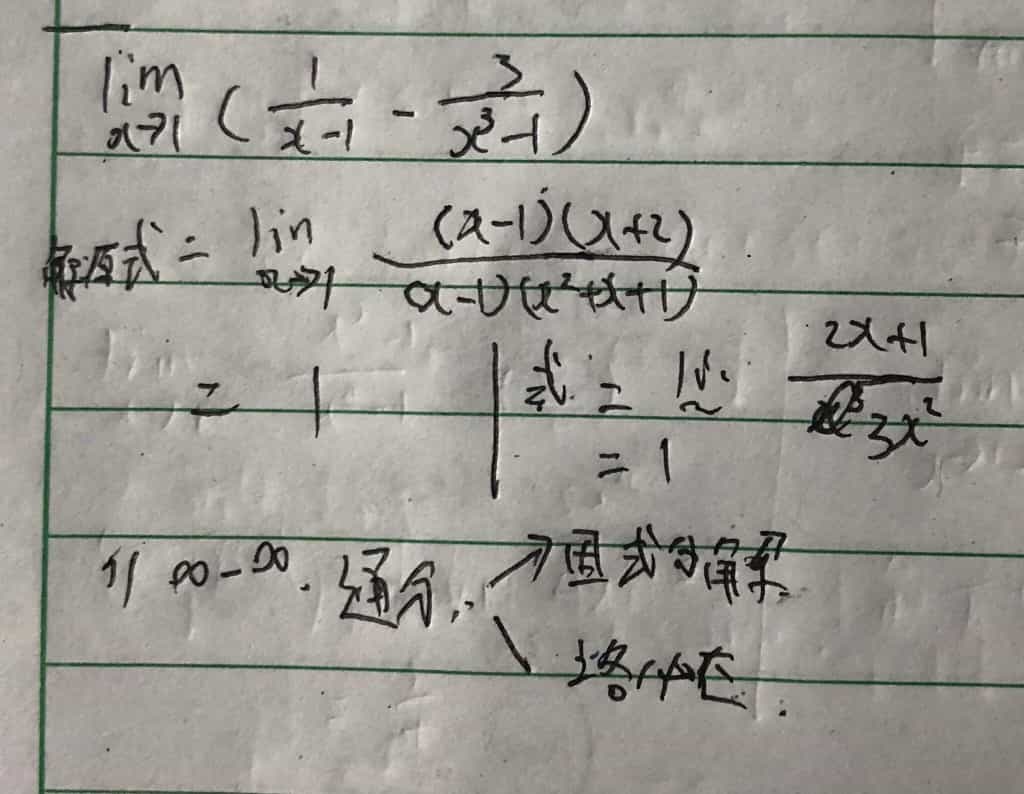 lim x→1 ( 1/(x-1) - 3/(x³-1) )
解原式 = lim x→1 (x-1)(x+2) / (x-1)(x²+x+1)
= 1 | 式 = lim (2x+1)/(3x²)
= 1
1) ∞-∞. 通分. ↗ 因式分解
↘ 洛必达.